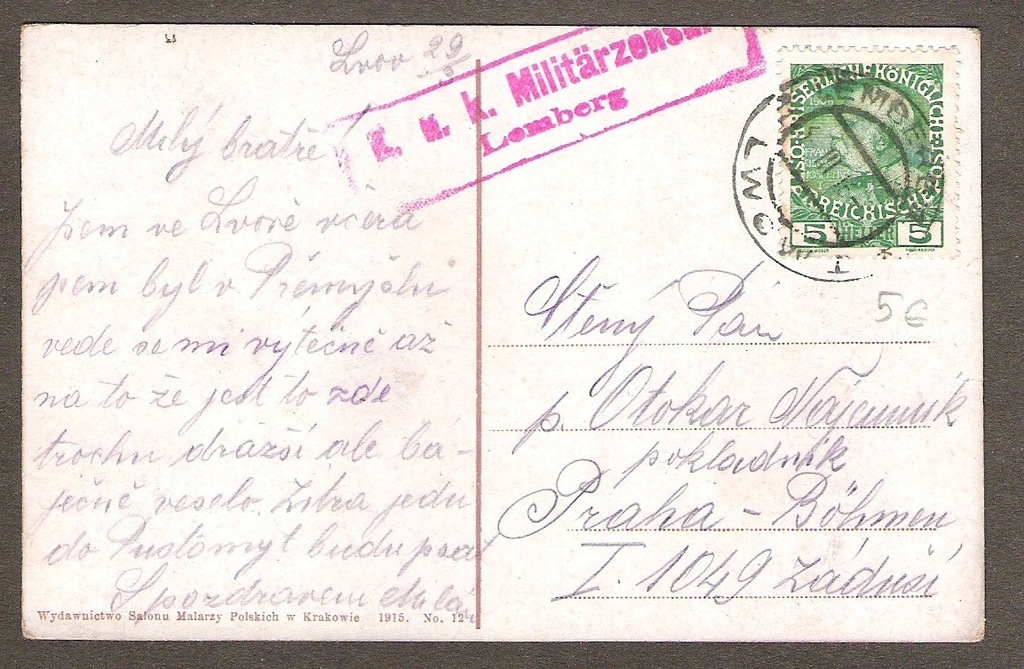 Lvov 29
Milý bratře
jsem ve Lvově včera
jsem byl v Přemyšlu
vede se mi výtečně až
na to že jest to zde
trochu dražší ale bá-
ječně veselo. Zítra jedu
do Pustomyt budu psát
S pozdravem
Wydawnictwo Salonu Malarzy Polskich w Krakowie 1915. No. 12
K. u. k. Militärzensur
Lemberg
KAISERLICHE KÖNIGLICHE
ÖSTERREICHISCHE
1908
5 HELLER 5
LEMBERG
LWÓW
5€
Ctěný Pán
p. Otokar Nájemník
pokladník
Praha - Böhmen
I. 1049 Záduší